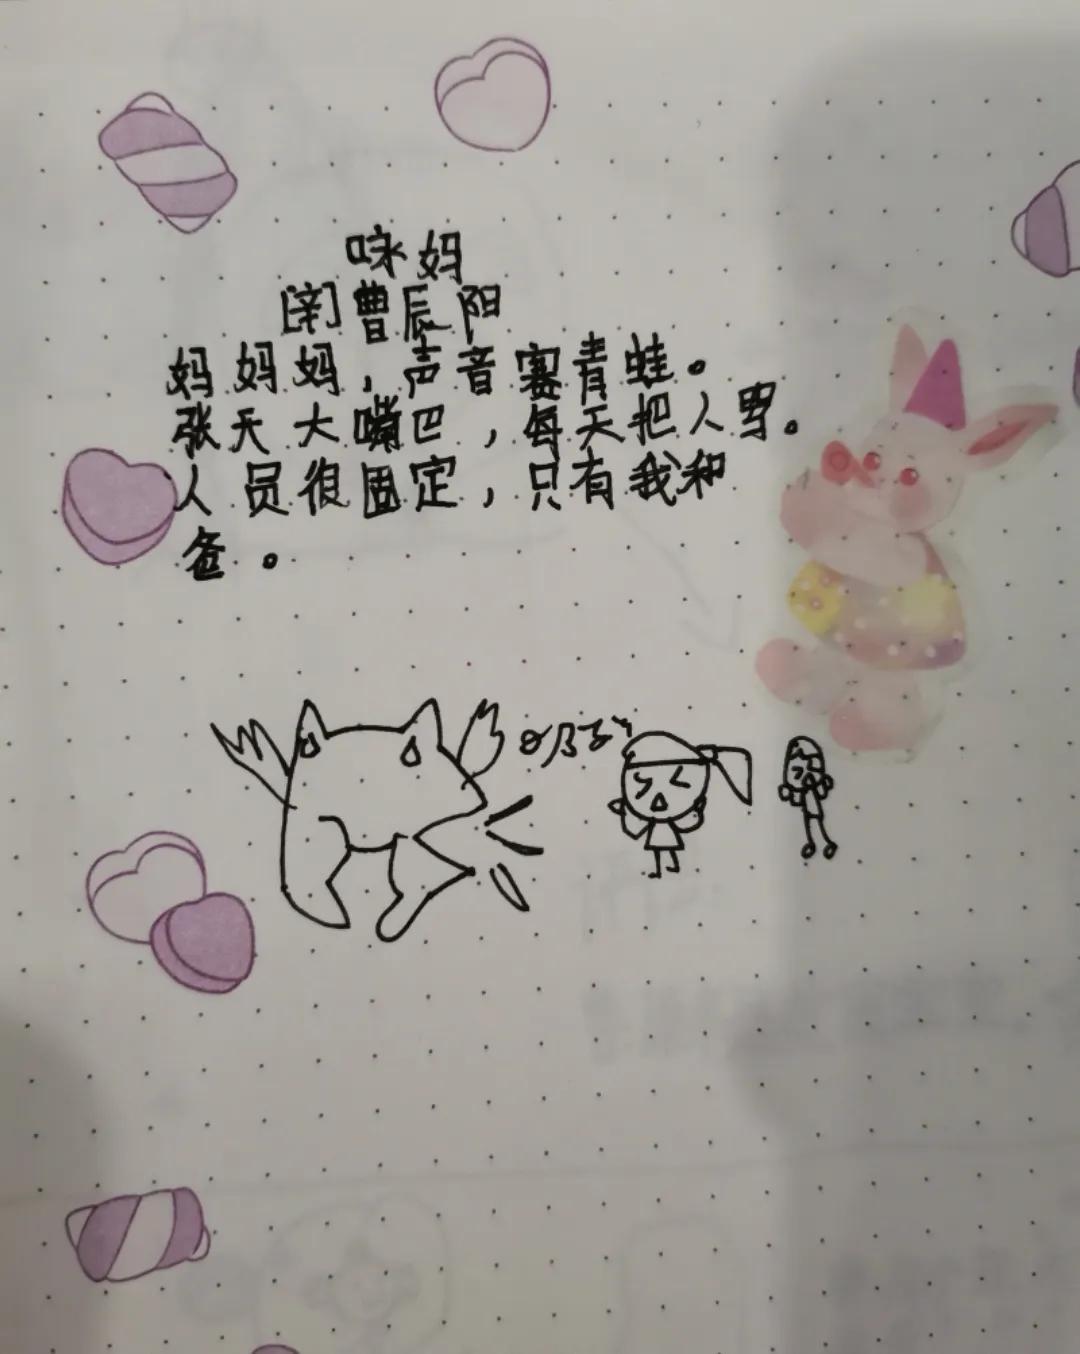 咏妈
[宰]曹辰阳
妈妈妈，声音赛青蛙。
张天大嘴巴，每天把人骂。
人员很固定，只有我和
爸。